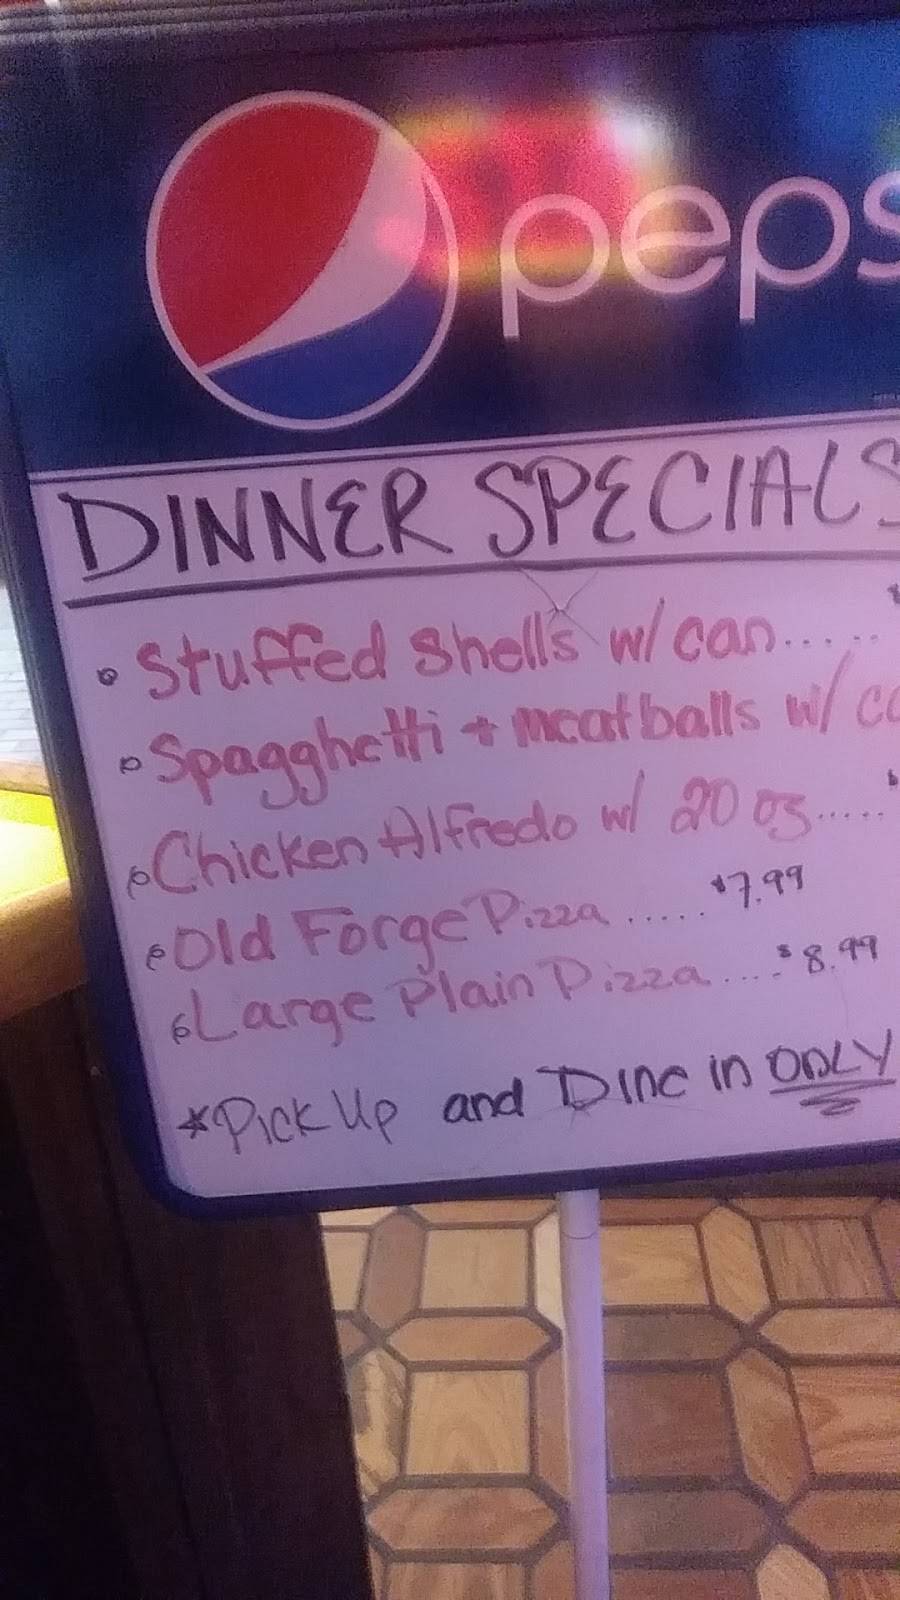 peps
DINNER SPECIALS
Stuffed Shells w/ can.....
Spagghetti + meatballs w/ ca
Chicken Alfredo w/ 20 oz.....
Old Forge Pizza ..... $7.99
Large Plain Pizza .... $8.99
*Pick Up and Dine in ONLY